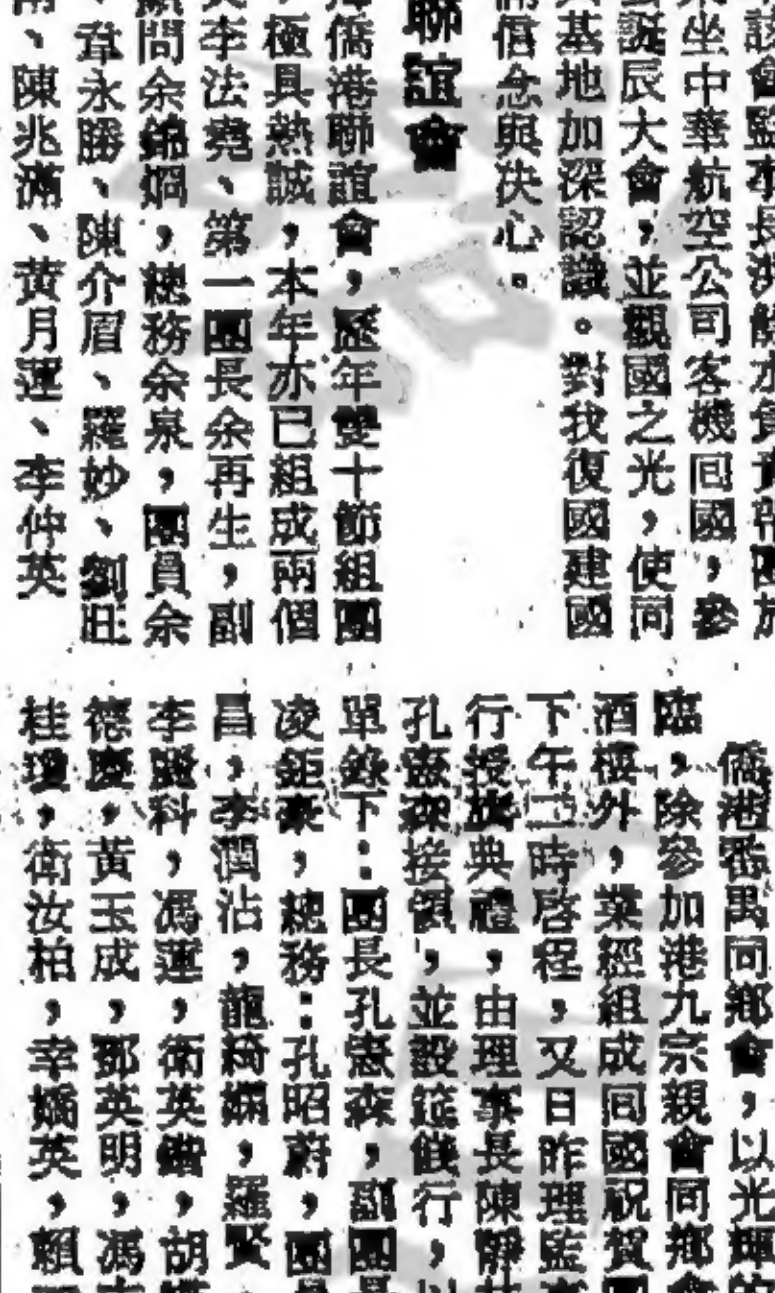 該會監事長洪
乘坐中華航空公司客機囘國，參
誕辰大會，並觀國之光，使同
基地加深認識。對我復國建國
信念與決心。
聯誼會
僑港聯誼會，歷年雙十節組團
極具熱誠，本年亦已組成兩個
李法堯、第一團長余再生，副
顧問余錦嫻，總務余泉，團員余
韋永勝、陳介眉、羅妙、劉旺
、陳兆滿、黃月運、李仲英
僑港番禺同鄉會，以光輝的
臨，除參加港九宗親會同鄉會
酒樓外，業經組成囘國祝賀團
下午二時啓程，又日昨理監事
行授旗典禮，由理事長陳靜
孔憲森接領，並設筵餞行，以
單錄下：團長孔憲森，副團長
凌鉅豪，總務：孔昭蔚，團員
昌，李潤沾，龍綺嫻，羅賢，
李 科，馮運，衛英 ，胡
德慶，黃玉成，鄧英明，馮
桂瓊，衛汝柏，幸嬌英，賴